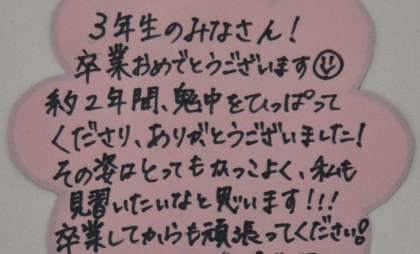 3年生のみなさん!
卒業おめでとうございます
約2年間、鬼中をひっぱって
くださり、ありがとうございました!
その姿はとってもかっこよく、私も
見習いたいなと思います!!!
卒業してからも頑張ってください!